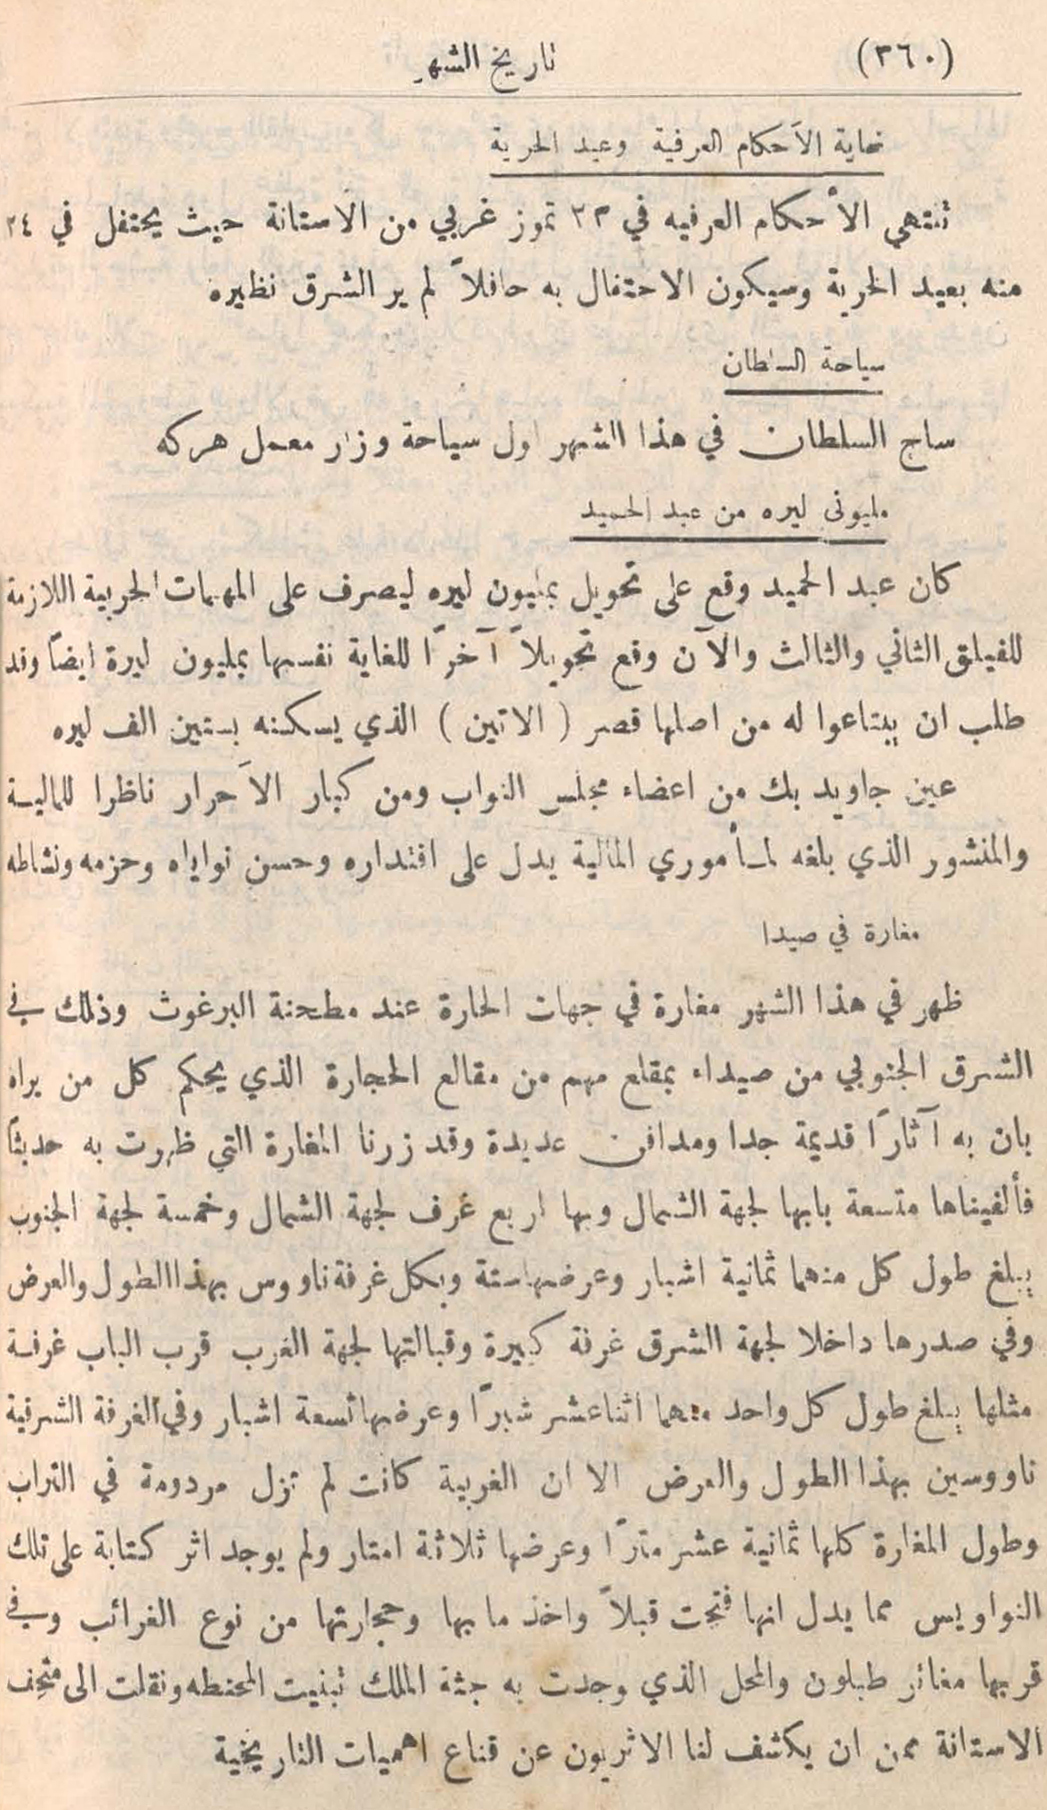 (٣٦٠) تاريخ الشهر
نهاية الأحكام العرفية وعيد الحرية
تنتهي الأحكام العرفيه في ٢٣ تموز غربي من الاستانة حيث يحتفل في ٢٤
منه بعيد الحرية وسيكون الاحتفال به حافلاً لم ير الشرق نظيره
سياحة السلطان
ساح السلطان في هذا الشهر اول سياحة وزار معمل هركه
مليوني ليره من عبد الحميد
كان عبد الحميد وقع على تحويل بمليون ليره ليصرف على المهمات الحربية اللازمة
للفيلق الثاني والثالث والآن وقع تحويلاً آخرًا للغاية نفسها بمليون ليرة ايضاً وقد
طلب ان يبتاعوا له من اصلها قصر ( الاتين ) الذي يسكنه بستين الف ليره
عين جاويد بك من اعضاء مجلس النواب ومن كبار الأحرار ناظرا للمالية
والمنشور الذي بلغه لمأموري المالية يدل على اقتداره وحسن نواياه وحزمه ونشاطه
مغارة في صيدا
ظهر في هذا الشهر مغارة في جهات الحارة عند مطحنة البرغوث وذلك في
الشرق الجنوبي من صيداء بمقلع مهم من مقالع الحجارة الذي يحكم كل من يراه
بان به آثارًا قديمة جدا ومدافن عديدة وقد زرنا المغارة التي ظهرت به حديثاً
فألفيناها متسعة بابها لجهة الشمال وبها اربع غرف لجهة الشمال وخمسة لجهة الجنوب
يبلغ طول كل منهما ثمانية اشبار وعرضها ستة وبكل غرفة ناووس بهذا الطول والعرض
وفي صدرها داخلا لجهة الشرق غرفة كبيرة وقبالتها لجهة الغرب قرب الباب غرفة
مثلها يبلغ طول كل واحد منهما اثنا عشر شبرًا وعرضها تسعة اشبار وفي الغرفة الشرقية
ناووسين بهذا الطول والعرض الا ان الغربية كانت لم تزل مردومة في التراب
وطول المغارة كلها ثمانية عشر مترًا وعرضها ثلاثة امتار ولم يوجد اثر كتابة على تلك
النواويس مما يدل انها فتحت قبلاً واخذ ما بها وحجارتها من نوع الغرائب وفي
قربها مغائر طبلون والمحل الذي وجدت به جثة الملك تبنيت المحنطه ونقلت الى متحف
الاستانة فمن ان يكشف لنا الاثريون عن قناع اهميات التاريخية